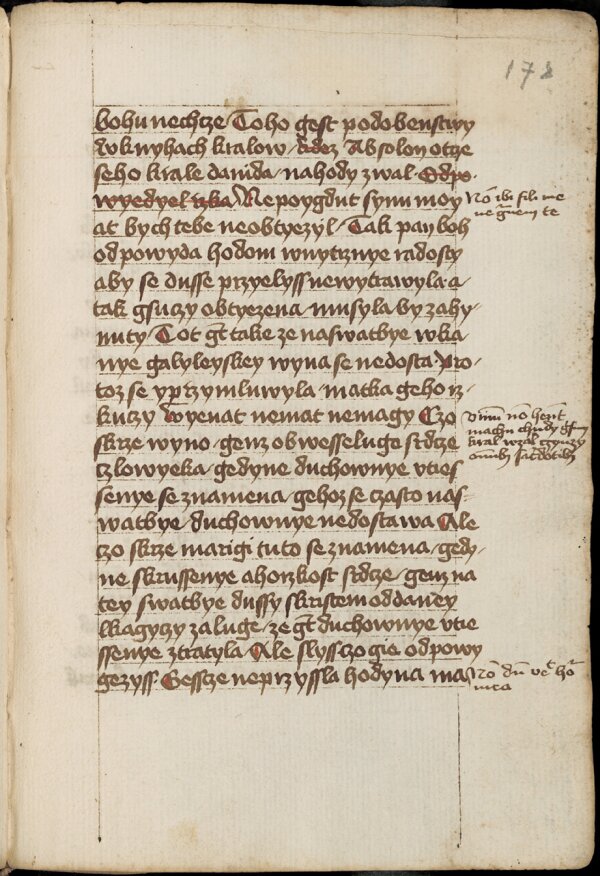 178
bohu nechcze Toho gest podobenstwy
w knyhach kralow kdez Absolon otcze
seho krale dauida na hody zwal Odpo
wyedyel rzka Nepoygdut synu moy
at bych tebe neobtyezyl Tak pan boh
odpowyda hodom wnytrznye radosty
aby se dusse przyelyss newytrawyla a
tak gsuczy obtyezena musyla by zahy
nuty Tot gt take ze na swatbye w ka
nye galyleyskey wyna se nedosta Pro
toz se y przymluwyla matka geho rz
kuczy wyenat nemat nemagy Czo
skrze wyno genz obwesseluge srdcze
czlowyeka gedyne duchownye vties
senye se znamena gehoz se czasto na s
watbye duchownye nedostawa Ale
czo skrze marigi tuto se znamena gedy
ne skrussenye a horzkost srdcze genz na
tey swatbye dussy s kristem oddaney
lkagyczy zaluge ze gt duchownye vtie
ssenye ztratyla Ale slyss czo gie odpowy
gezyss Gesstcze neprzyssla hodyna ma
No ibi fili me
te
vinum no hent